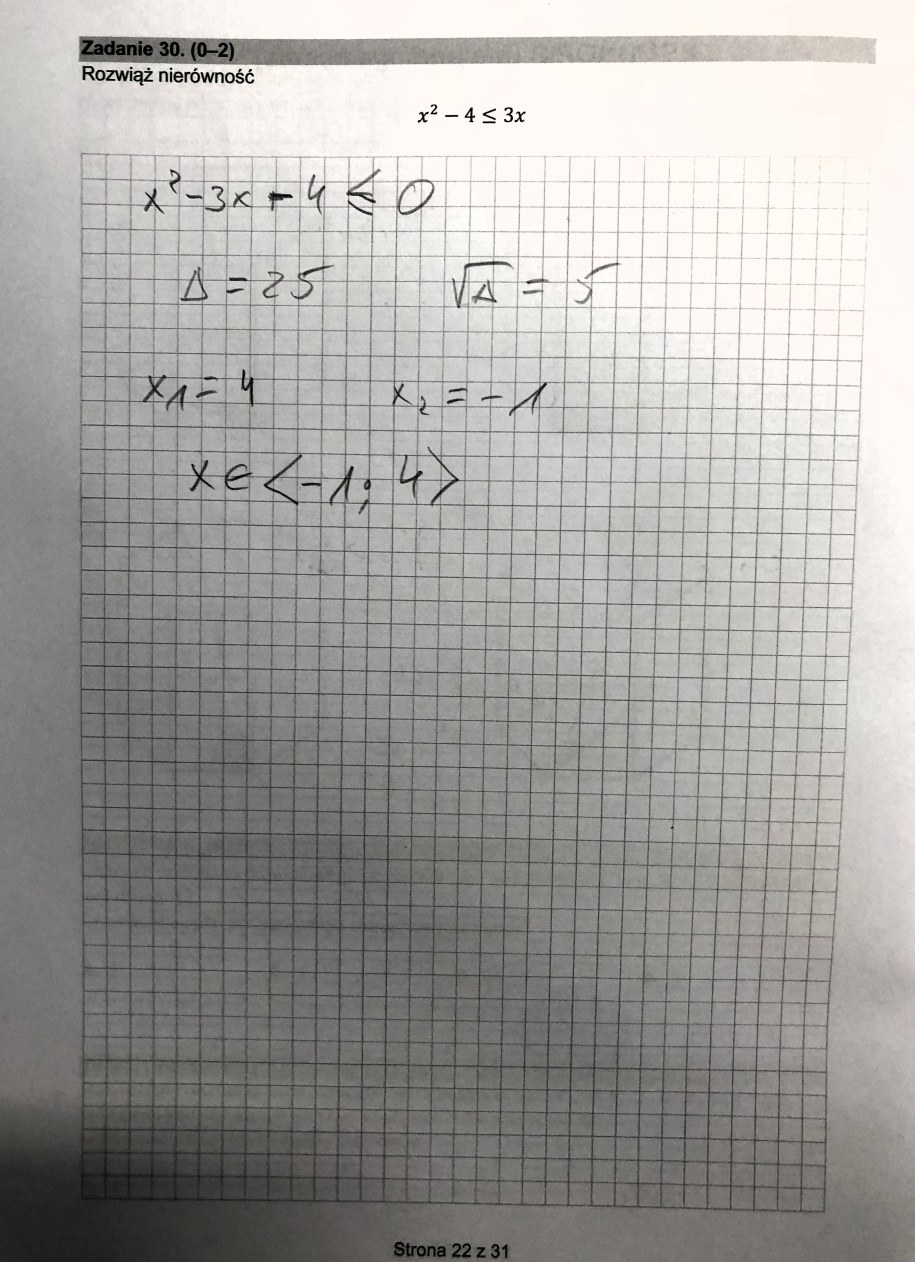 Zadanie 30. (0–2)
Rozwiąż nierówność
x² − 4 ≤ 3x
x² − 3x − 4 ≤ 0
Δ = 25 √Δ = 5
x₁ = 4 x₂ = −1
x ∈ <−1; 4>
Strona 22 z 31